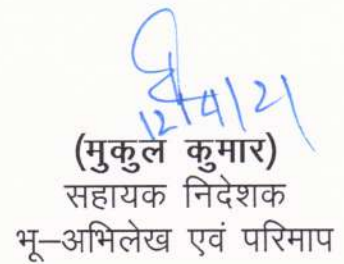 12/4/21
(मुकुल कुमार)
सहायक निदेशक
भू–अभिलेख एवं परिमाप